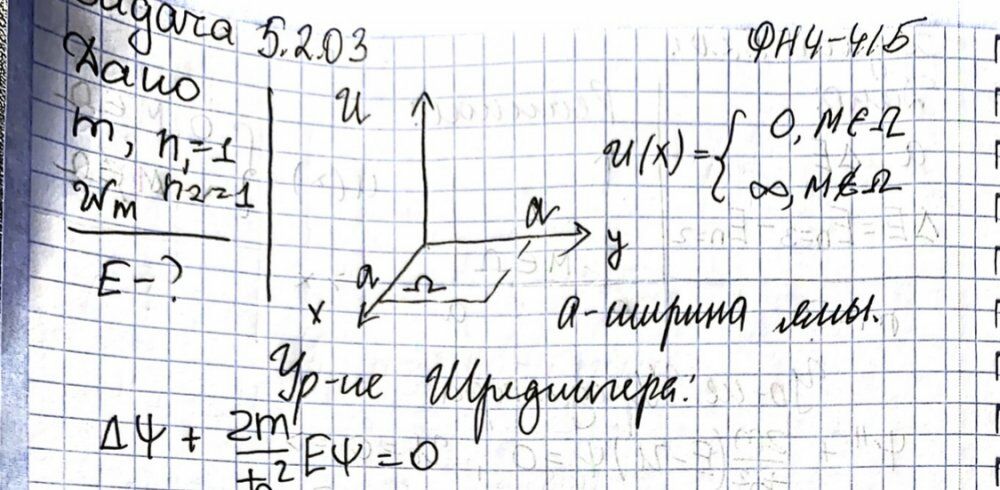 Задача 5.2.03
ФН4-41Б
Дано
m, n₁=1
n₂=1
Wm
E-?
U
a
y
a
Ω
x
U(x) = { 0, M∈Ω
∞, M∉Ω
a-ширина ямы.
Ур-ие Шредингера:
ΔΨ + 2m/ħ² EΨ = 0